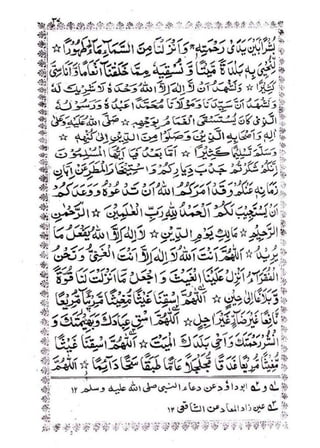 ٣٨
بشرا بين يدى رحمته ☆ وانزلنا من السماء ماء طهورا ☆
لنحيى به بلدة ميتا و نسقيه مما خلقنا انعاما و اناسى
كثيرا ☆ ونشهد ان لا اله الا الله وحده لا شريك له
ونشهد ان سيدنا ومولانا محمدا عبده و رسوله
الذى كان يستسقى الغمام بوجهه ☆ صلى الله عليه وعلى
اله واصحابه الذين وصلوا من الدين الى كنهه ☆
وسلم تسليما كثيرا ☆ اما بعد فيا ايها المسلمون
انكم شكوتم جدب دياركم واستيخار المطر عن ابان
زمانه عنكم وقد امركم الله ان تدعوه ووعدكم
ان يستجيب لكم الحمد لله رب العلمين ☆ الرحمن
الرحيم ☆ مالك يوم الدين ☆ لا اله الا الله يفعل ما
يريد ☆ اللهم انت الله لا اله الا انت الغنى ونحن
الفقراء انزل علينا الغيث واجعل ما انزلت لنا قوة
وبلاغا الى حين ☆ اللهم اسقنا غيثا مغيثا مريئا مريعا
نافعا غير ضار عاجلا غير اجل ☆ اللهم اسق عبادك وبهيمتك و
انشر رحمتك واحى بلدك الميت ☆ اللهم اسقنا غيثا
مغيثا مريعا غدقا مجللا عاما طبقا سحا دائما ☆ اللهم
ابوداؤد عن دعاء النبى صلى الله عليه وسلم ١٢
عين زاد المعاد عن الشافعى ١٢